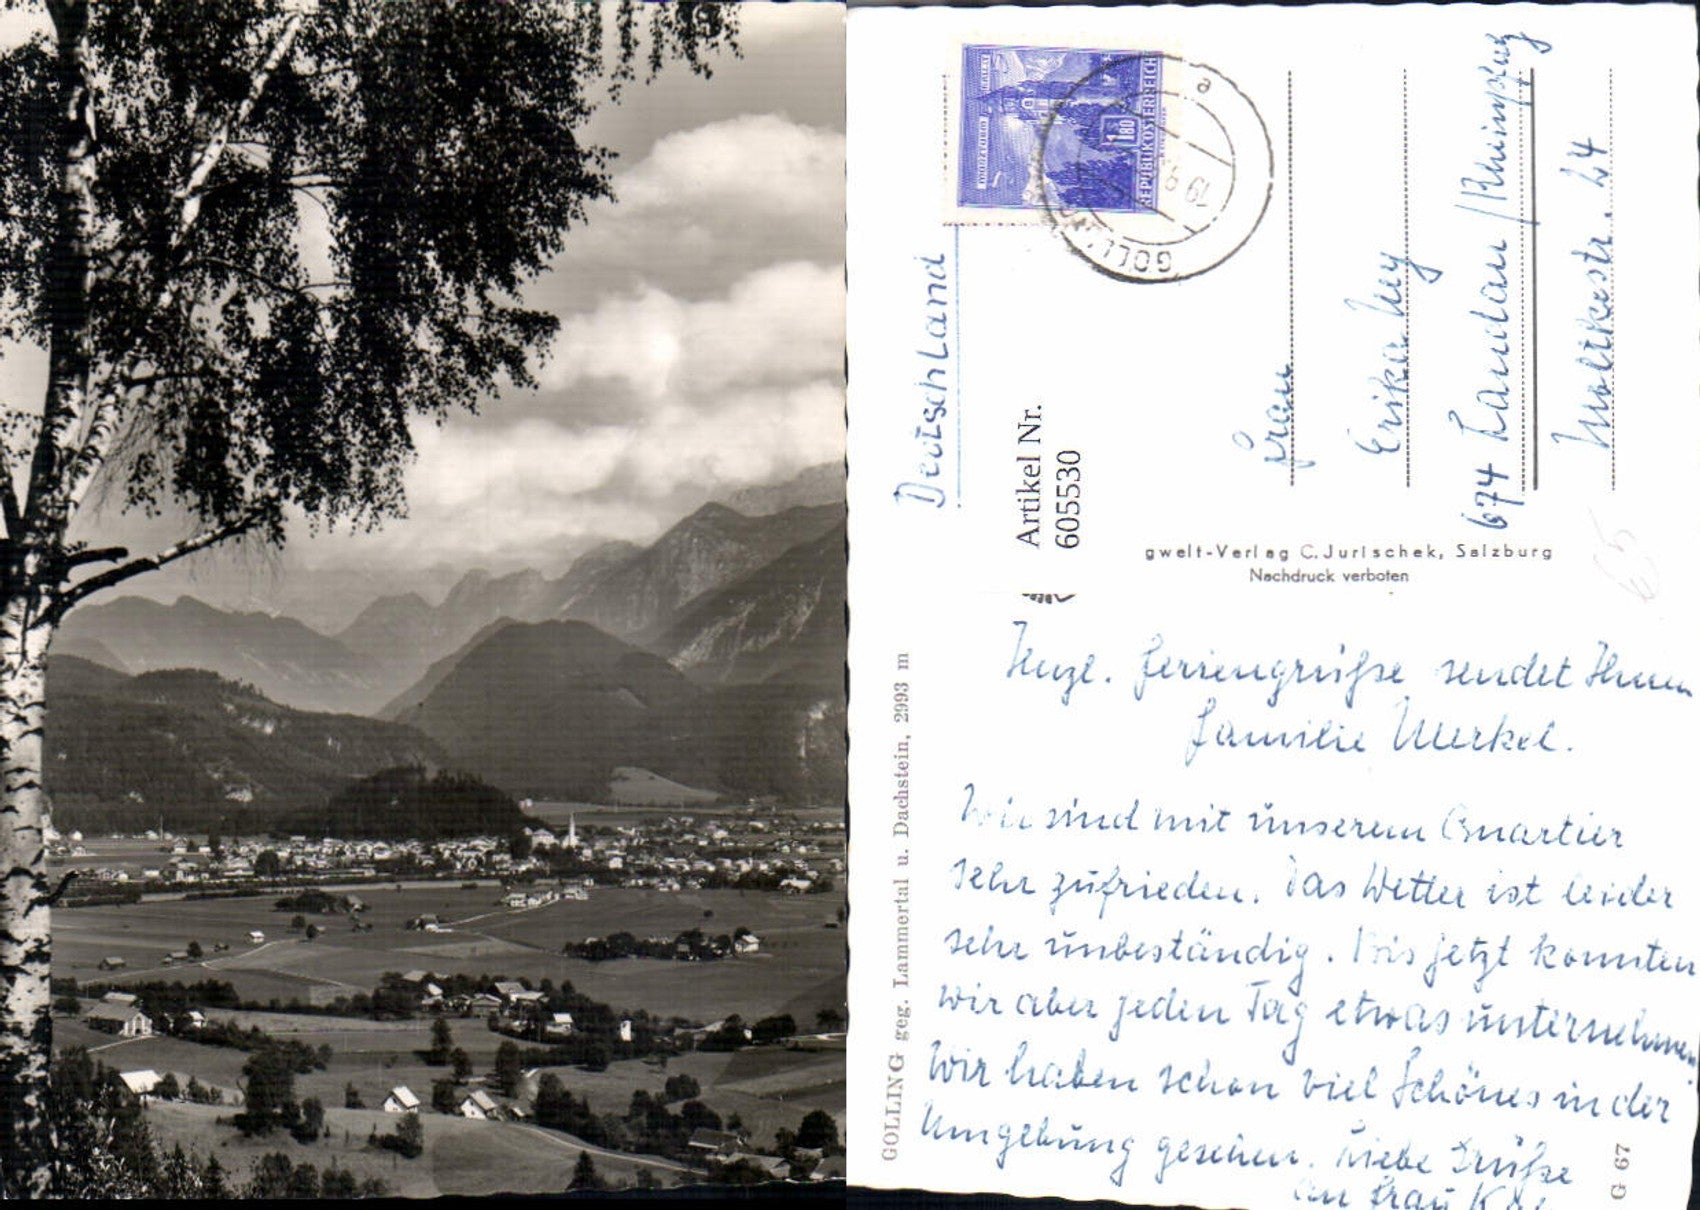 REPUBLIK ÖSTERREICH
1.80
MORIZTURM
GOLLING
Deutschland
Artikel Nr.
605530
Frau
Erika Ney
674 Landau/Rheinpfalz
Moltkestr. 24
gwelt-Verlag C. Jurischek, Salzburg
Nachdruck verboten
GOLLING geg. Lammertal u. Dachstein, 2993 m
G 67
Herzl. Feriengrüße sendet Ihnen
Familie Merkel.
Wir sind mit unserem Quartier
sehr zufrieden. Das Wetter ist leider
sehr unbeständig. Bis jetzt konnten
wir aber jeden Tag etwas unternehmen.
Wir haben schon viel Schönes in der
Umgebung gesehen. Liebe Grüße
an Frau